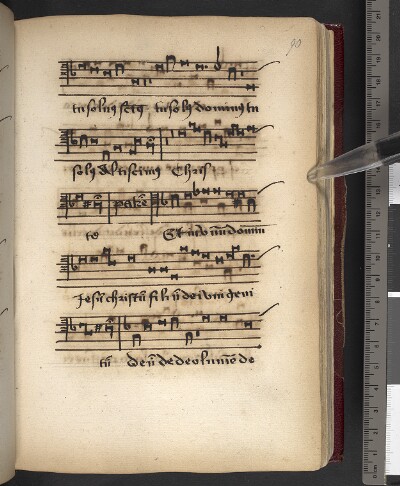 90
tu solus sctus tu solus dominus tu
solus altissimus Chris
te patrē Et in vnum domin
Jesū christū filiū dei vni geni
tū deū de deo lumē de